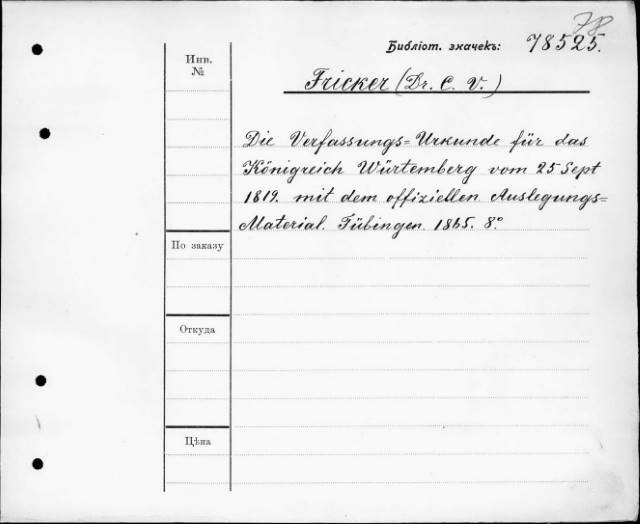 78
Библіот. значекъ: 78525.
Инв.
№
Fricker (Dr. C. V.)
Die Verfassungs=Urkunde für das
Königreich Würtemberg vom 25 Sept
1819. mit dem offiziellen Auslegungs=
Material. Tübingen. 1865. 8°
По заказу
Откуда
Цѣна